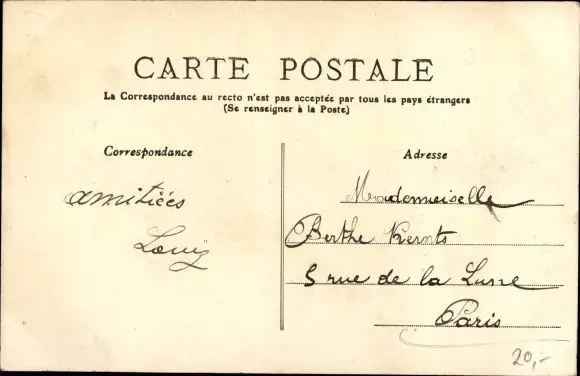 CARTE POSTALE
La Correspondance au recto n'est pas acceptée par tous les pays étrangers
(Se renseigner à la Poste)
Correspondance
amitiées
Louis
Adresse
Mademoiselle
Berthe
5 rue de la Lune
Paris
20,-